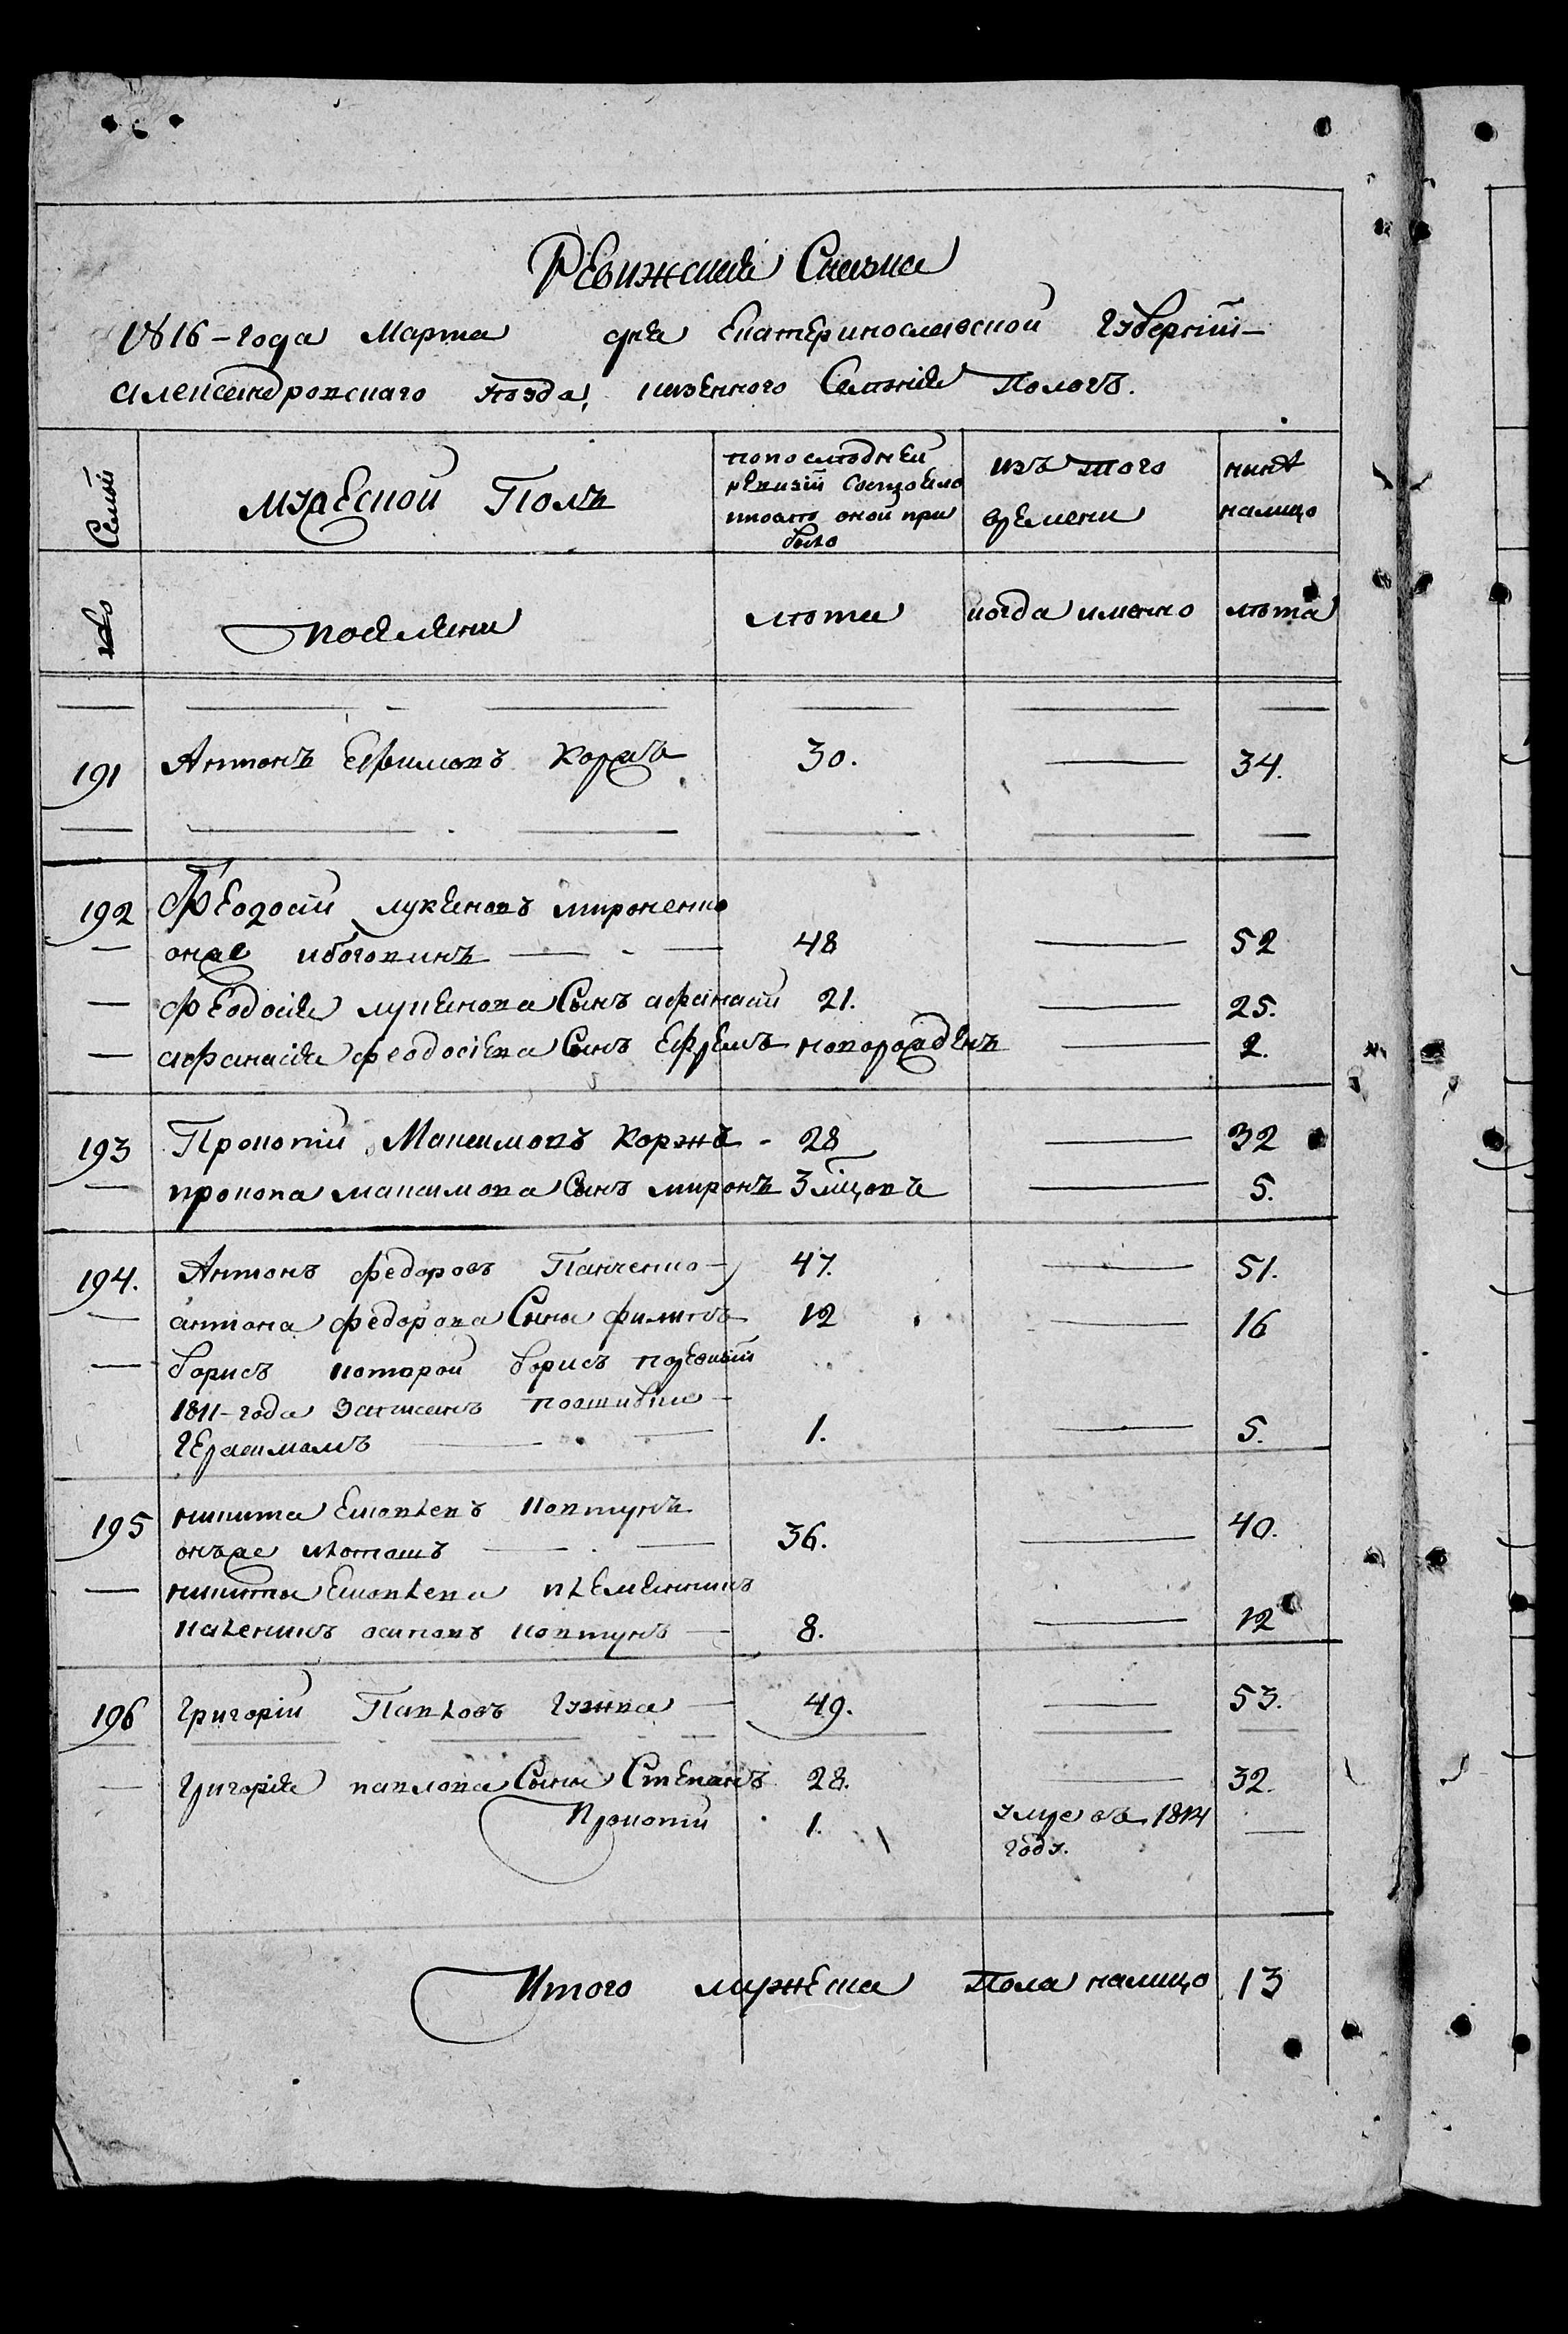 Ревижская Сказка
1816-года Марта дня Екатеринославской Губернiи-
Александровскаго уезда, казенного Селенiя Пологъ.
Семьи
мужеской Полъ
попоследней ревизiи Состояло ипосле оной прибыло
изъ того времени
ныне налицо
№
поселяни
лета
когда имянно
лета
191 Антонъ Ефимовъ Коржъ 30. 34.
192 Феодосiй лукъяновъ мироненко
онже ибоговинъ 48 52
Феодосiя лукянова Сынъ афанасiй 21. 25.
афанасiя феодосiева Сынъ Ефремъ новорожденъ 2.
193 Прокопiй Максимовъ Коржъ - 28 32
прокопа максимова Сынъ миронъ 3 мцовъ 5.
194. Антонъ федоровъ Панченко 47. 51.
антона федорова Сыны филипъ 12 16
борисъ которой борисъ поревизiи
1811-года Записанъ
Герасимомъ 1. 5.
195 никита Яковлевъ Ковтунъ
онъже 36. 40.
никиты Яковлева племянникъ
осиповъ Ковтунъ 8. 12
196 Григорiй Павловъ Гужва 49. 53.
Григорiя павлова Сыны Степанъ 28. 32.
Прокопiй 1. умре въ 1814
году.
Итого мужеска Пола налицо 13